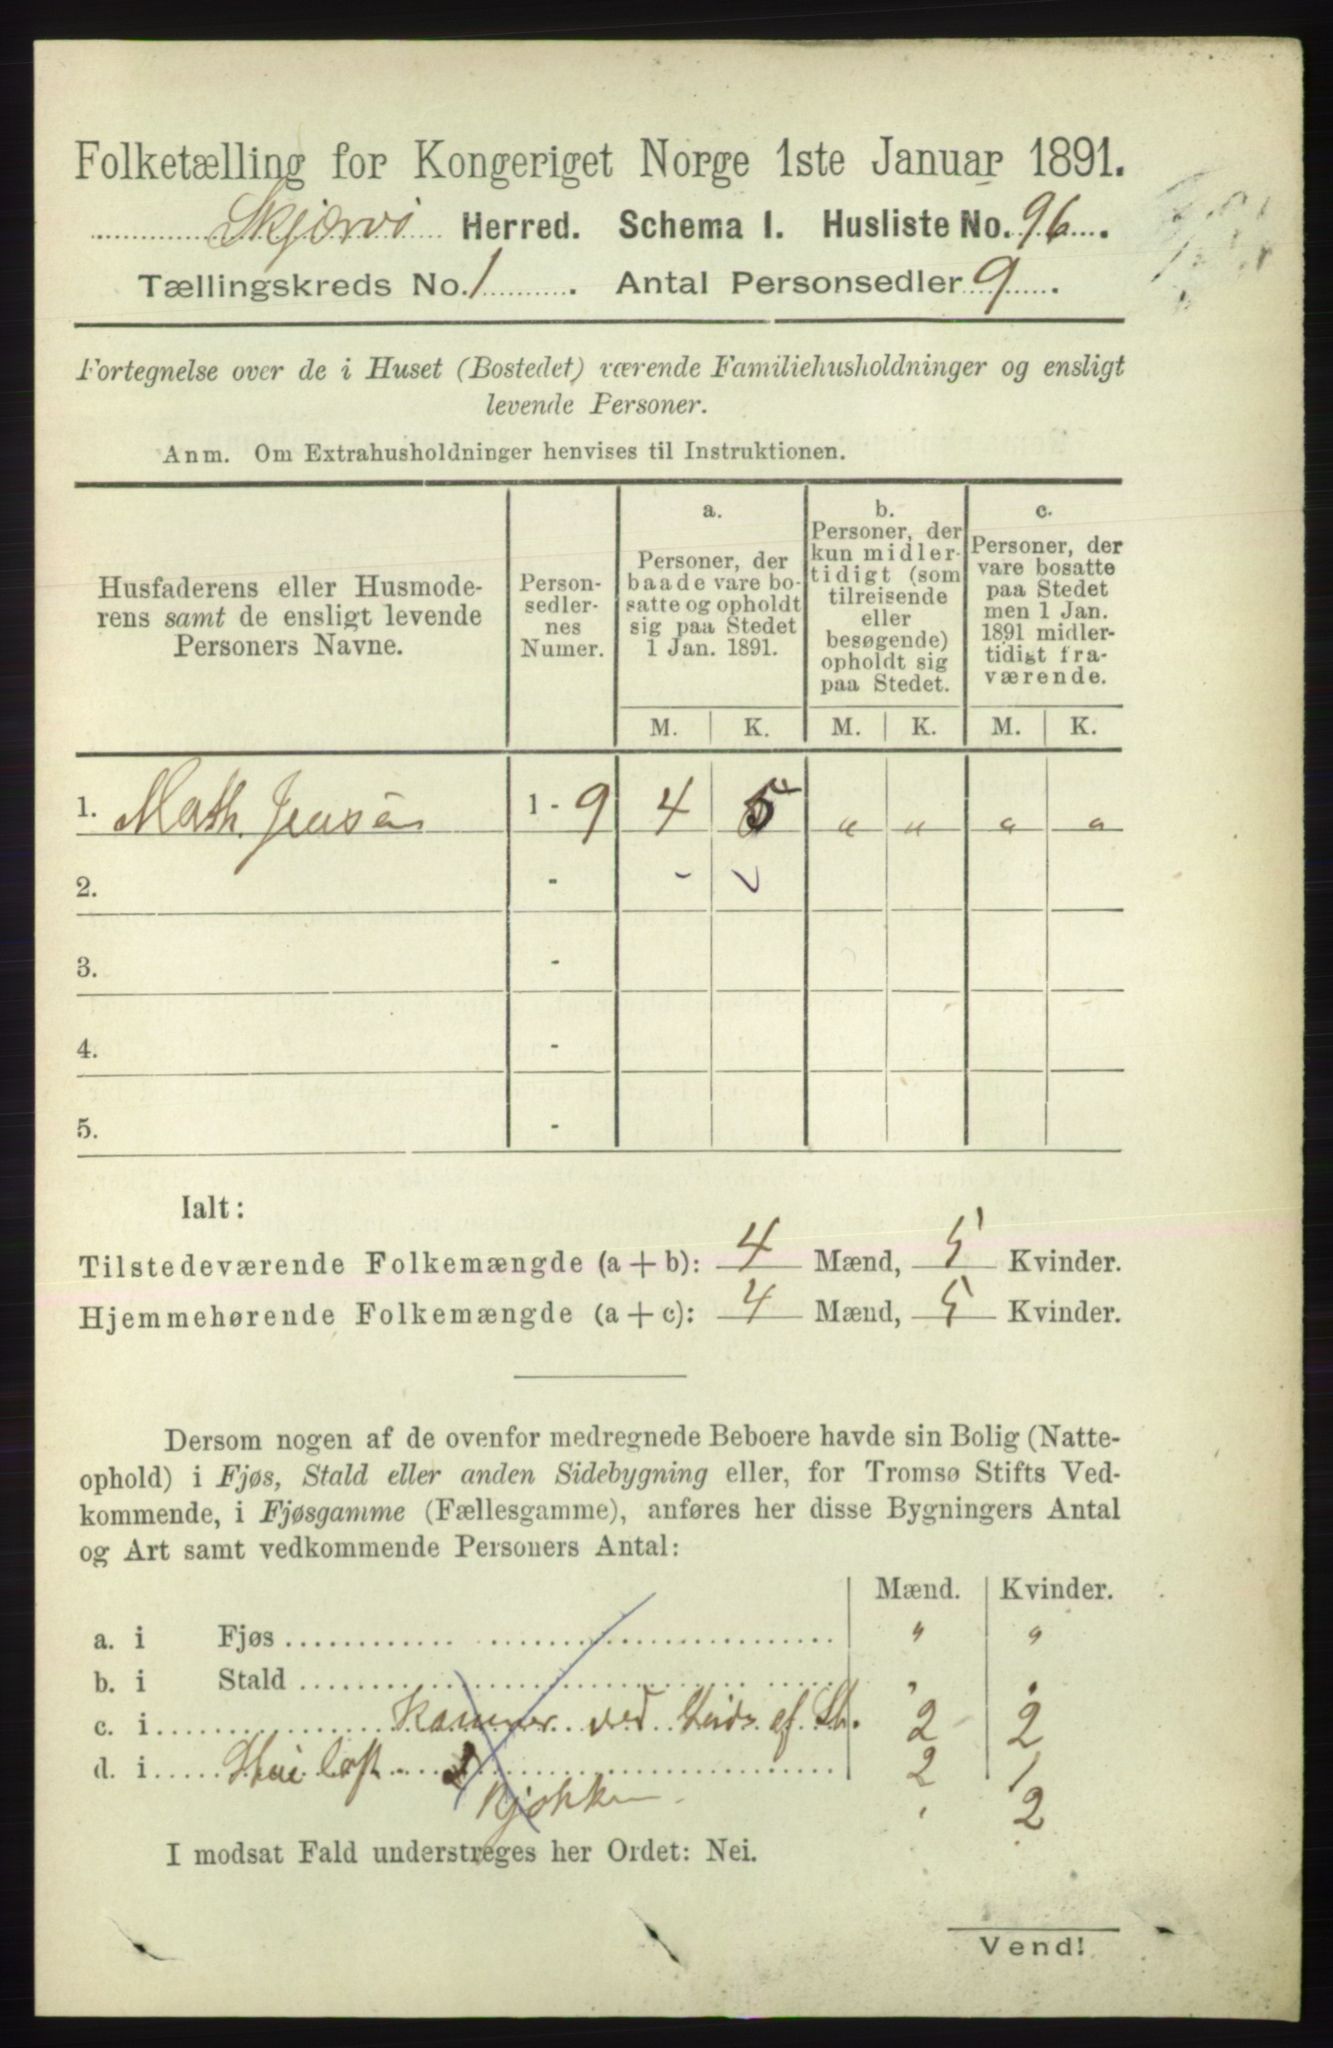 Folketælling for Kongeriget Norge 1ste Januar 1891.
Skjærvö Herred. Schema I. Husliste No. 96.
Tællingskreds No. 1. Antal Personsedler 9.
Fortegnelse over de i Huset (Bostedet) værende Familiehusholdninger og ensligt
levende Personer.
Anm. Om Extrahusholdninger henvises til Instruktionen.
Husfaderens eller Husmode-
rens samt de ensligt levende
Personers Navne.
Person-
sedler-
nes
Numer.
a.
Personer, der
baade vare bo-
satte og opholdt
sig paa Stedet
1 Jan. 1891.
b.
Personer, der
kun midler-
tidigt (som
tilreisende
eller
besøgende)
opholdt sig
paa Stedet.
c.
Personer, der
vare bosatte
paa Stedet
men 1 Jan.
1891 midler-
tidigt fra-
værende.
M. K. M. K. M. K.
1. Math. Jensen 1 - 9 4 5 " " " "
2. - - ✓
3. -
4. -
5. -
Ialt:
Tilstedeværende Folkemængde (a + b): 4 Mænd, 5 Kvinder.
Hjemmehørende Folkemængde (a + c): 4 Mænd, 5 Kvinder.
Dersom nogen af de ovenfor medregnede Beboere havde sin Bolig (Natte-
ophold) i Fjøs, Stald eller anden Sidebygning eller, for Tromsø Stifts Ved-
kommende, i Fjøsgamme (Fællesgamme), anføres her disse Bygningers Antal
og Art samt vedkommende Personers Antal:
Mænd. Kvinder.
a. i Fjøs " "
b. i Stald " "
c. i Kammer ved af 2 2
d. i 2 1
Kjøkken " 2
I modsat Fald understreges her Ordet: Nei.
Vend!